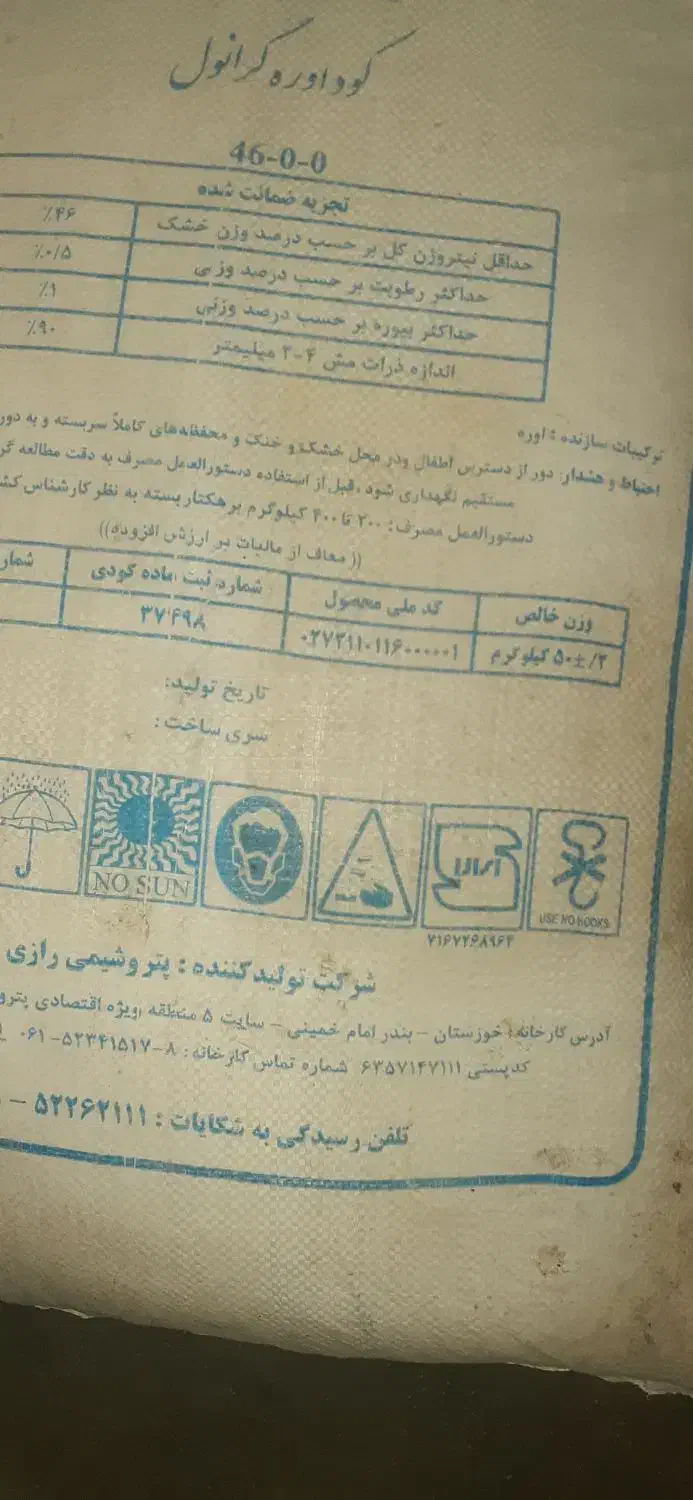 کود اوره گرانول
46-0-0
تجزیه ضمانت شده
حداقل نیتروژن کل بر حسب درصد وزن خشک ٪۴۶
حداکثر رطوبت بر حسب درصد وزنی ٪۰/۵
حداکثر بیوره بر حسب درصد وزنی ٪۱
اندازه ذرات مش ۴-۲ میلیمتر ٪۹۰
ترکیبات سازنده : اوره
احتیاط و هشدار: دور از دسترس اطفال ودر محل خشک و خنک و محفظه‌های کاملاً سربسته و به دور
مستقیم نگهداری شود .قبل از استفاده دستورالعمل مصرف به دقت مطالعه
دستورالعمل مصرف: ۲۰۰ تا ۴۰۰ کیلوگرم بر هکتار بسته به نظر کارشناس
(( معاف از مالیات بر ارزش افزوده))
وزن خالص کد ملی محصول شماره ثبت ماده کودی
۵۰±/۲ کیلوگرم ۰۲۷۲۱۱۰۱۱۶۰۰۰۰۰۱ ۳۷۴۹۸
تاریخ تولید:
سری ساخت :
NO SUN
USE NO HOOKS
۷۱۶۷۲۴۸۹۶۴
شرکت تولیدکننده : پتروشیمی رازی
آدرس کارخانه: خوزستان – بندر امام خمینی – سایت ۵ منطقه ویژه اقتصادی
کدپستی ۶۳۵۷۱۴۷۱۱۱ شماره تماس کارخانه: ۸-۵۲۳۴۱۵۱۷-۰۶۱
تلفن رسیدگی به شکایات : ۵۲۲۶۲۱۱۱ –